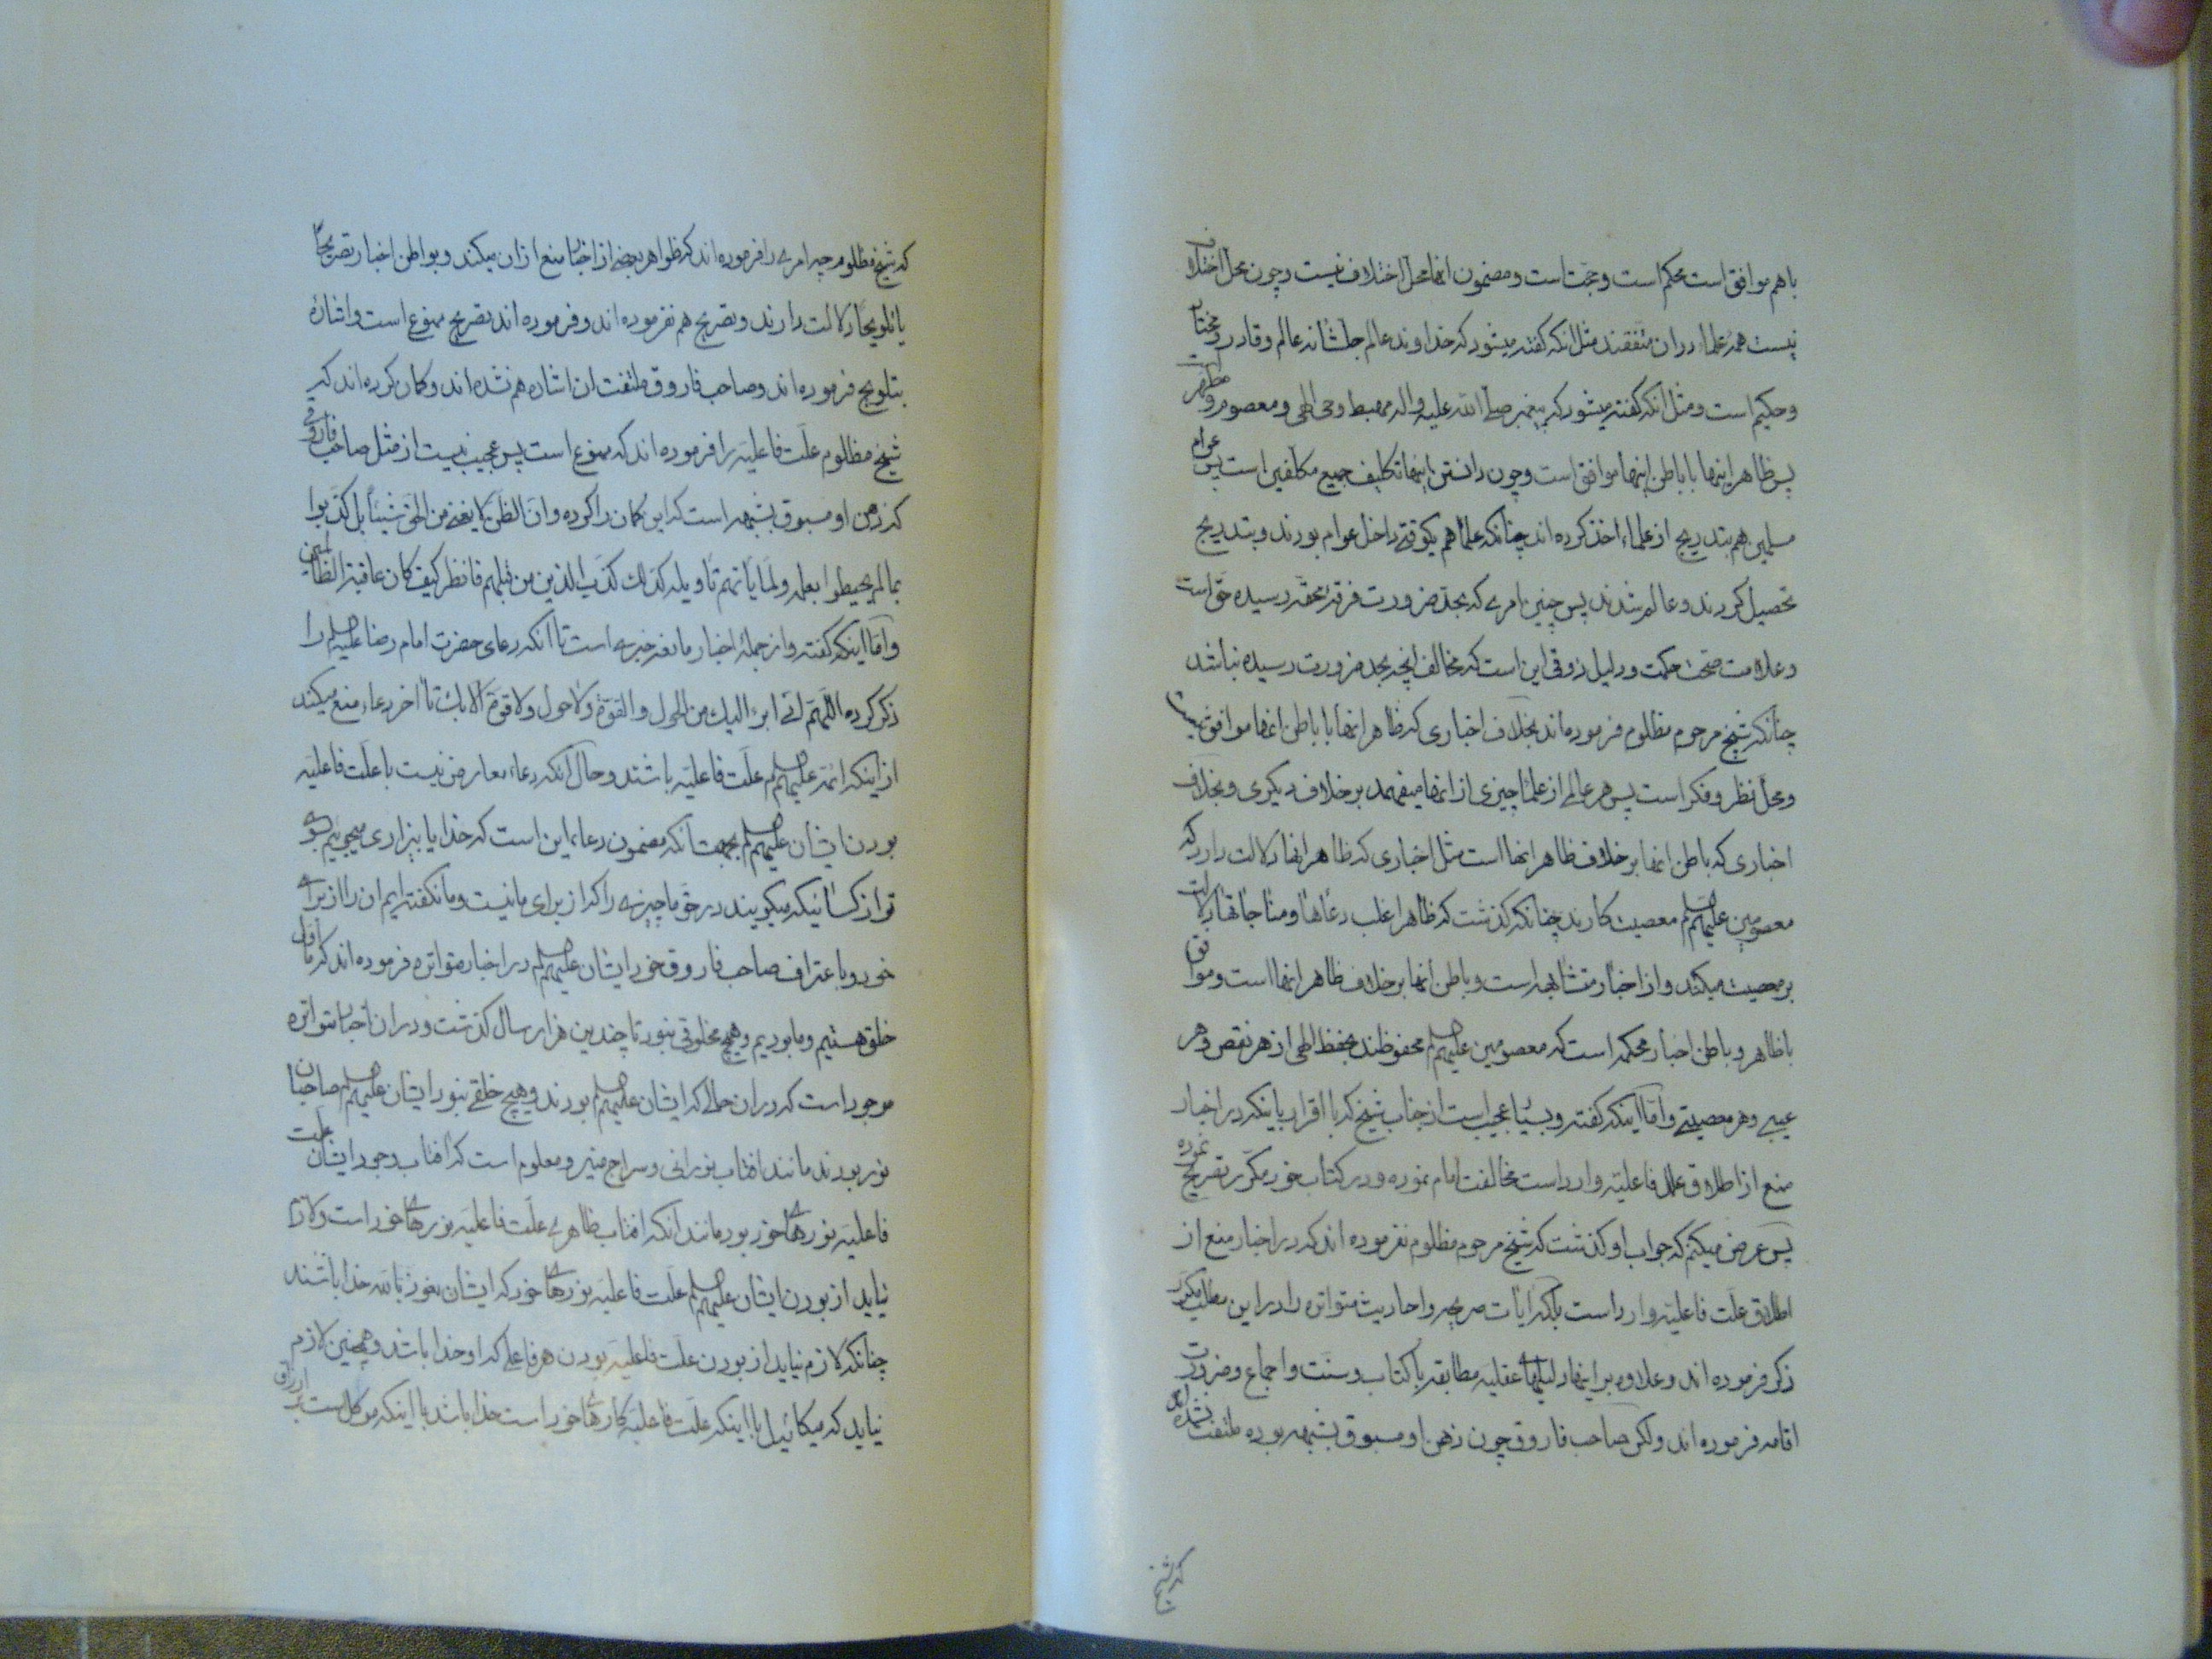 باهم موافق است محکم است و حجت است و مضمون انها محل اختلاف نیست و چون محل اختلاف
نیست همه علماء در ان متفقند مثل انکه گفته میشود که خداوند عالم جلشانه عالم و قادر و مختار
و حکیم است و مثل انکه گفته میشود که پیغمبر صلی الله علیه و اله مهبط وحی الهی و معصوم و مطهر است
پس ظاهر اینها با باطن اینها موافق است و چون دانستن اینها تکلیف جمیع مکلفین است پس عوام
مسلمین هم بتدریج از علماء اخذ کرده اند چنانکه علما هم یکوقتی داخل عوام بودند و بتدریج
تحصیل کردند و عالم شدند پس چنین امری که بحد ضرورت فرقه محقه رسیده حق است
و علامت صحت حکمت و دلیل ذوقی این است که مخالف انچه بحد ضرورت رسیده نباشد
چنانکه شیخ مرحوم مظلوم فرموده اند بخلاف اخباری که ظاهر انها با باطن انها موافق نیست
و محل نظر و فکر است پس هر عالمی از علما چیزی از انها میفهمد بر خلاف دیگری و بخلاف
اخباری که باطن انها بر خلاف ظاهر انها است مثل اخباری که ظاهر انها دلالت دارد که
معصومین علیهم السلم معصیت کارند چنانکه گذشت که ظاهر اغلب دعاها و مناجاتها دلالت
بر معصیت میکند و از اخبار متشابهه است و باطن انها بر خلاف ظاهر انها است و موافق
با ظاهر و باطن اخبار محکمه است که معصومین علیهم السلم محفوظند بحفظ الهی از هر نقص و هر
عیبی و هر معصیتی و اما اینکه گفته و بسیار عجیب است از جناب شیخ که با اقرار باینکه در اخبار
منع از اطلاق علل فاعلیه وارد است مخالفت امام نموده و در کتاب خود مکرر تصریح نموده
پس عرض میکنم که جواب او گذشت که شیخ مرحوم مظلوم نفرموده اند که در اخبار منع از
اطلاق علت فاعلیه وارد است بلکه ایات صریحه و احادیث متواتره را در این مطلب مکرر
ذکر فرموده اند و علاوه بر اینها دلیلهای عقلیه مطابقه با کتاب و سنت و اجماع و ضرورت
اقامه فرموده اند ولکن صاحب فاروق چون ذهن او مسبوق بشبهه بوده ملتفت نشده اند
که شیخ
که شیخ مظلوم چه امری را فرموده اند که ظواهر بعضی از اخبار منع از ان میکند و بواطن اخبار تصریحا
یا تلویحا دلالت دارند و تصریح هم نفرموده اند و فرموده اند تصریح ممنوع است و اشاره
بتلویح فرموده اند و صاحب فاروق ملتفت ان اشاره هم نشده اند و گمان کرده اند که
شیخ مظلوم علت فاعلیه را فرموده اند که ممنوع است پس عجیب نیست از مثل صاحب فاروق
که ذهن او مسبوق بشبهه است که این گمان را کرده و ان الظن لا یغنی من الحق شیئا بل کذبوا
بما لم یحیطوا بعلمه و لما یأتهم تأویله کذلک کذب الذین من قبلهم فانظر کیف کان عاقبة الظالمین
و اما اینکه گفته و از جمله اخبار مانعه خبری است تا انکه دعای حضرت امام رضا علیه السلم را
ذکر کرده اللهم انی ابرء الیک من الحول و القوة و لا حول و لا قوة الا بک تا اخر دعاء منع میکند
از اینکه ائمه علیهم السلم علت فاعلیه باشند و حال انکه دعاء معارض نیست با علت فاعلیه
بودن ایشان علیهم السلم بجهت انکه مضمون دعاء این است که خدایا بیزاری میجوئیم بسوی
تو از کسانیکه میگویند در حق ما چیزی را که از برای ما نیست و ما نگفته ایم ان را از برای
خود و باعتراف صاحب فاروق خود ایشان علیهم السلم در اخبار متواتره فرموده اند که ما اول
خلق هستیم و ما بودیم و هیچ مخلوقی نبود تا چندین هزار سال گذشت و در ان اخبار متواتره
موجود است که در ان حالی که ایشان علیهم السلم بودند و هیچ خلقی نبود ایشان علیهم السلم صاحبان
نور بودند مانند افتاب نورانی و سراج منیر و معلوم است که افتاب وجود ایشان علت
فاعلیه نورهای خود بود مانند انکه افتاب ظاهری علت فاعلیه نورهای خود است و لازم
نیاید از بودن ایشان علیهم السلم علت فاعلیه نورهای خود که ایشان نعوذ بالله خدا باشند
چنانکه لازم نیاید از بودن علت فاعلیه بودن هر فاعلی که او خدا باشد و همچنین لازم
نیاید که میکائیل با اینکه علت فاعلیه کارهای خود است خدا باشد با اینکه موکل است بر ارزاق